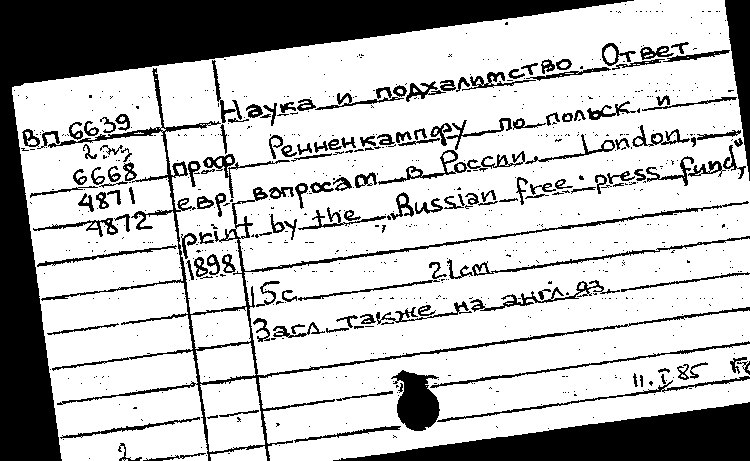 Наука и подхалимство. Ответ
Вп 6639
2 экз
6668 проф. Ренненкампфу по польск и
4871 евр. вопросам в России. London,
4872 print. by the „Russian free press fund,"
1898
15 с. 21 cm
Загл. также на англ. яз.
11.I 85
2